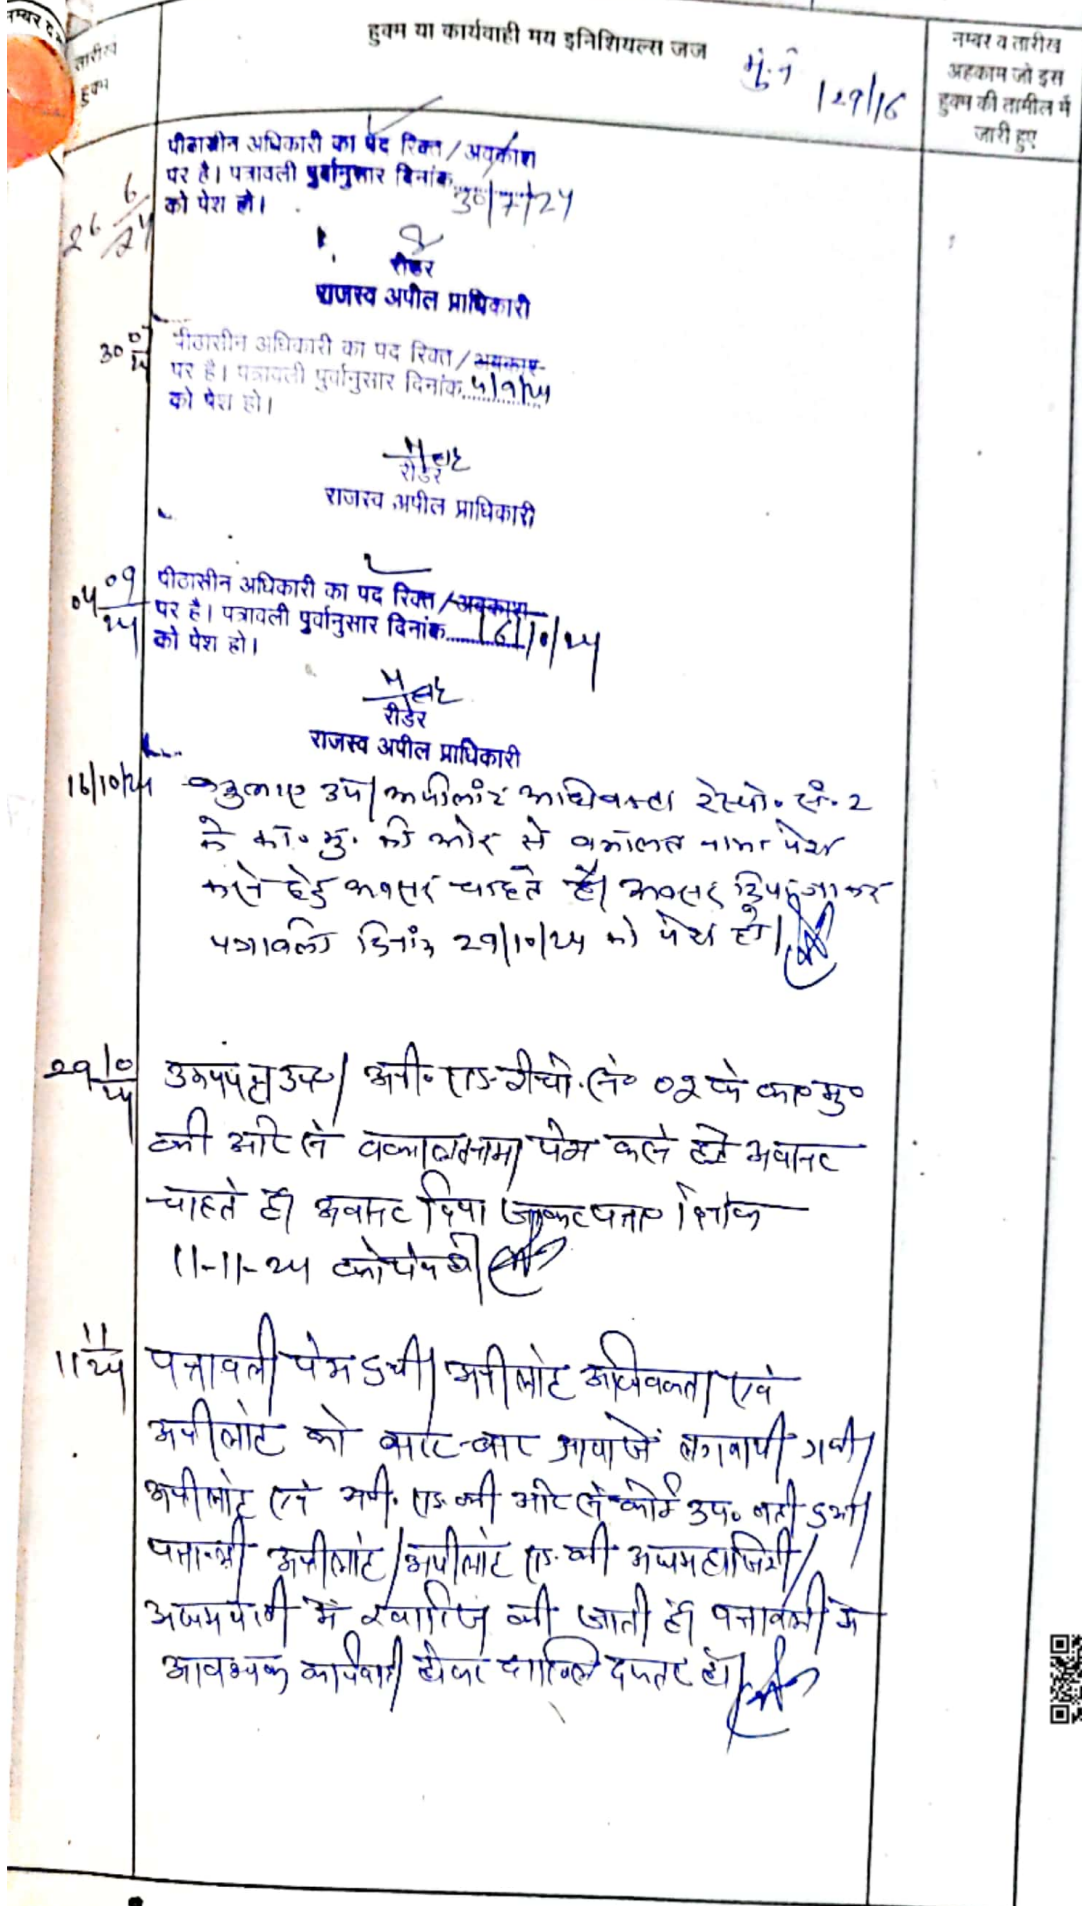 नम्बर व
तारीख
हुक्म
हुक्म या कार्यवाही मय इनिशियल्स जज
मुं.नं
129/16
नम्बर व तारीख
अहकाम जो इस
हुक्म की तामील में
जारी हुए
26 6/24
पीठासीन अधिकारी का पद रिक्त / अवकाश
पर है। पत्रावली पुर्वानुसार दिनांक 30/7/24
को पेश हो।
रीडर
राजस्व अपील प्राधिकारी
30 07/24
पीठासीन अधिकारी का पद रिक्त / अवकाश
पर है। पत्रावली पुर्वानुसार दिनांक 4/9/24
को पेश हो।
रीडर
राजस्व अपील प्राधिकारी
04 09/24
पीठासीन अधिकारी का पद रिक्त / अवकाश
पर है। पत्रावली पुर्वानुसार दिनांक 16/10/24
को पेश हो।
रीडर
राजस्व अपील प्राधिकारी
16/10/24
उप। अपीलांट अधिवक्ता रेस्पो. सं. 2
के का० मु. की ओर से वकालत नामा पेश
करने हेतु अवसर चाहते है। अवसर दिया जाकर
पत्रावली दिनांक 29/10/24 को पेश हो।
29 10/24
उभयपक्ष उप०। अपी० एड. रेस्पो. सं० 02 के का० मु०
की ओर से वकालतनामा पेश करने हेतु अवसर
चाहते है। अवसर दिया जाकर पत्रा० दिनांक
11-11-24 को पेश हो।
11 11/24
पत्रावली पेश हुयी। अपीलांट अधिवक्ता एवं
अपीलांट को बार-बार आवाजें लगवायी गयी।
अपीलांट एवं अपी. एड. की ओर से कोई उप. नही हुआ।
पत्रावली अपीलांट/अपीलांट एड. की अदमहाजिरी/
अदमपैरवी में खारिज की जाती है। पत्रावली में
आवश्यक कार्यवाही होकर दाखिल दफ्तर हो।